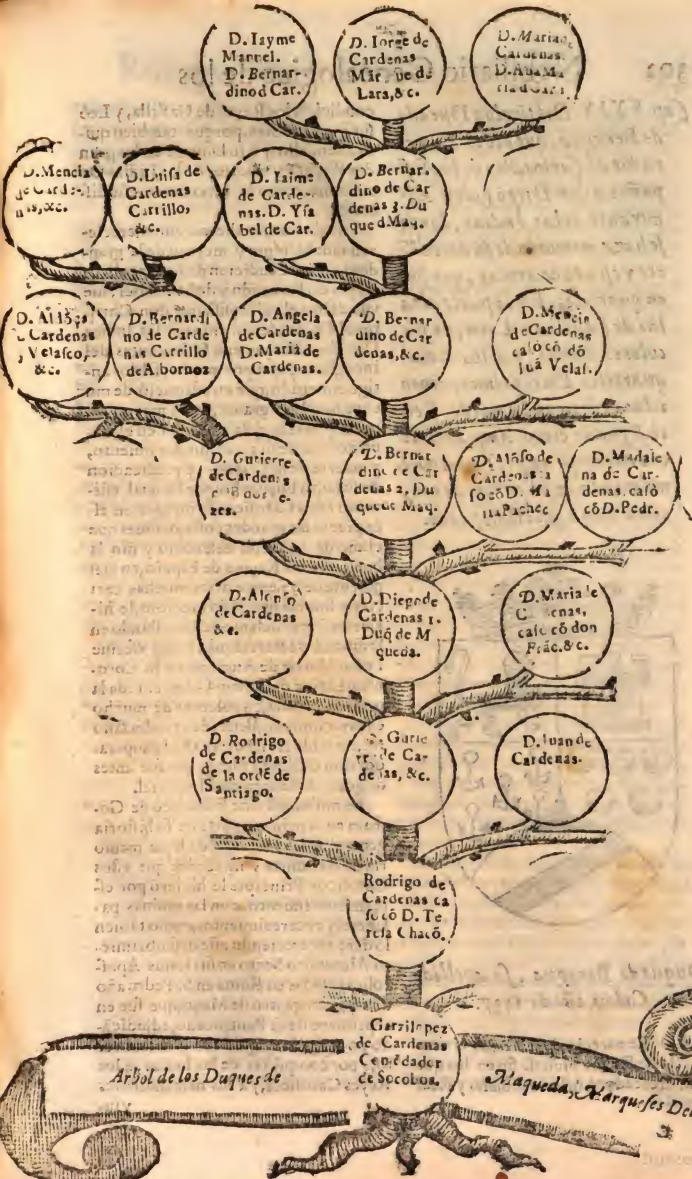 D. Iayme
Manuel.
D. Bernar-
dino d Car.
D. Iorge de
Cardenas
Mar que de
Lara, &c.
D. Maria
Cardenas.
D. Ana Ma
ria d Car.
D. Mencia
de Carde-
nas, &c.
D. Luisa de
Cardenas
Carrillo,
&c.
D. Iaime
de Carde-
nas. D. Ysa
bel de Car.
D. Bernar.
dino de Car
denas 3. Du
que d Maq.
Cardenas
y Velasco,
&c.
D. Bernardi
no de Carde
nas Carrillo
de Albornoz
D. Angela
de Cardenas
D. Maria de
Cardenas.
D. Bernar
dino de Car
denas, &c.
D. Mencia
de Cardenas
casó cō dō
Iuā Velas.
D. Gutierre
de Cardenas
zes.
D. Bernar
dino de Car
denas 2. Du
que de Maq.
D. Alōso de
Cardenas ca
so cō D. Ma
ria Pachec
D. Madale
na de Car-
denas, casò
cō D. Pedr.
D. Alonso
de Cardenas
&c.
D. Diego de
Cardenas 1.
Duq̄ de M
queda.
D. Maria de
Cardenas,
caso cō don
Frāc. &c.
D. Rodrigo
de Cardenas
de la ordē de
Santiago.
D. Gutie
rre de Car
denas, &c.
D. Iuan de
Cardenas.
Rodrigo de
Cardenas ca
so cō D. Te
resa Chacō.
Garzilopez
de Cardenas
Comēdador
de Socobos.
Arbol de los Duques de
Maqueda, Marqueses De